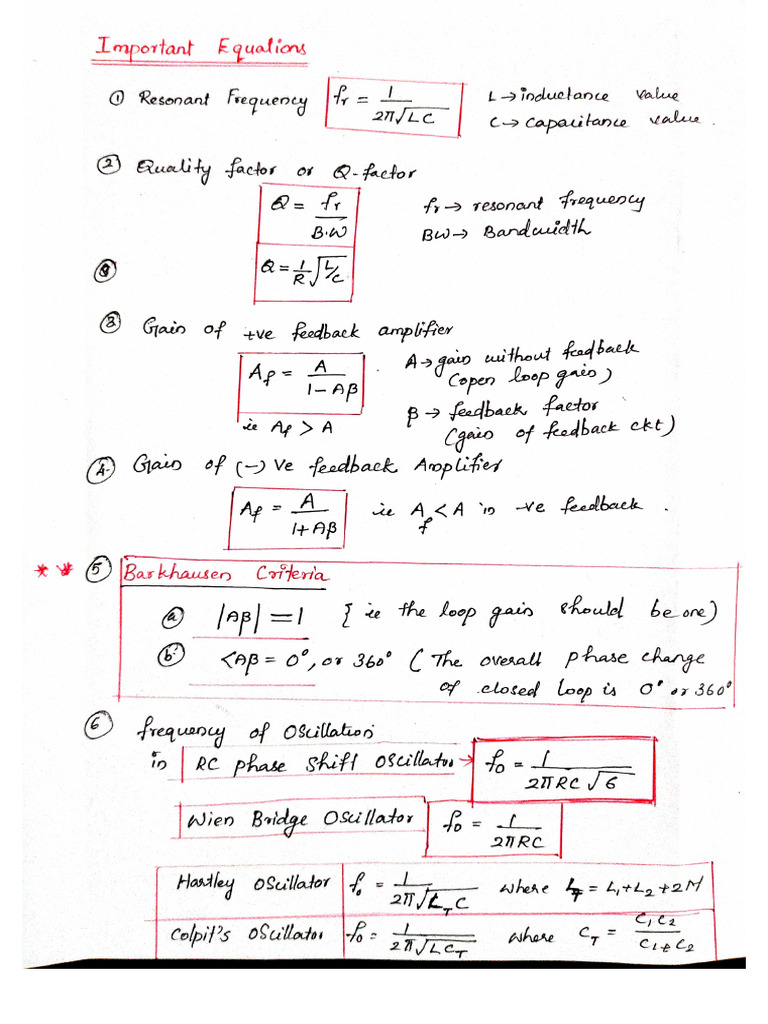 Important Equations
① Resonant Frequency fr = 1/(2π√LC) L→inductance value
C→capacitance value.
② Quality factor or Q-factor
Q = fr/B.W fr→ resonant frequency
BW→ Bandwidth
Q = 1/R √(L/C)
③ Gain of +ve feedback amplifier
Af = A/(1-Aβ) . A→gain without feedback
(open loop gain)
β→ feedback factor
ie Af > A (gain of feedback ckt)
④ Gain of (-) Ve feedback Amplifier
Af = A/(1+Aβ) ie Af < A in -ve feedback .
** ⑤ Barkhausen Criteria
ⓐ |Aβ| = 1 { ie the loop gain should be one)
ⓑ <Aβ = 0°, or 360° ( The overall phase change
of closed loop is 0° or 360°
⑥ frequency of Oscillation
in RC phase shift Oscillator → fo = 1/(2πRC√6)
Wien Bridge Oscillator fo = 1/(2πRC)
Hartley Oscillator fo = 1/(2π√(L_T C)) where L_T = L1+L2+2M
Colpit's Oscillator fo = 1/(2π√(LC_T)) where C_T = C1C2/(C1+C2)